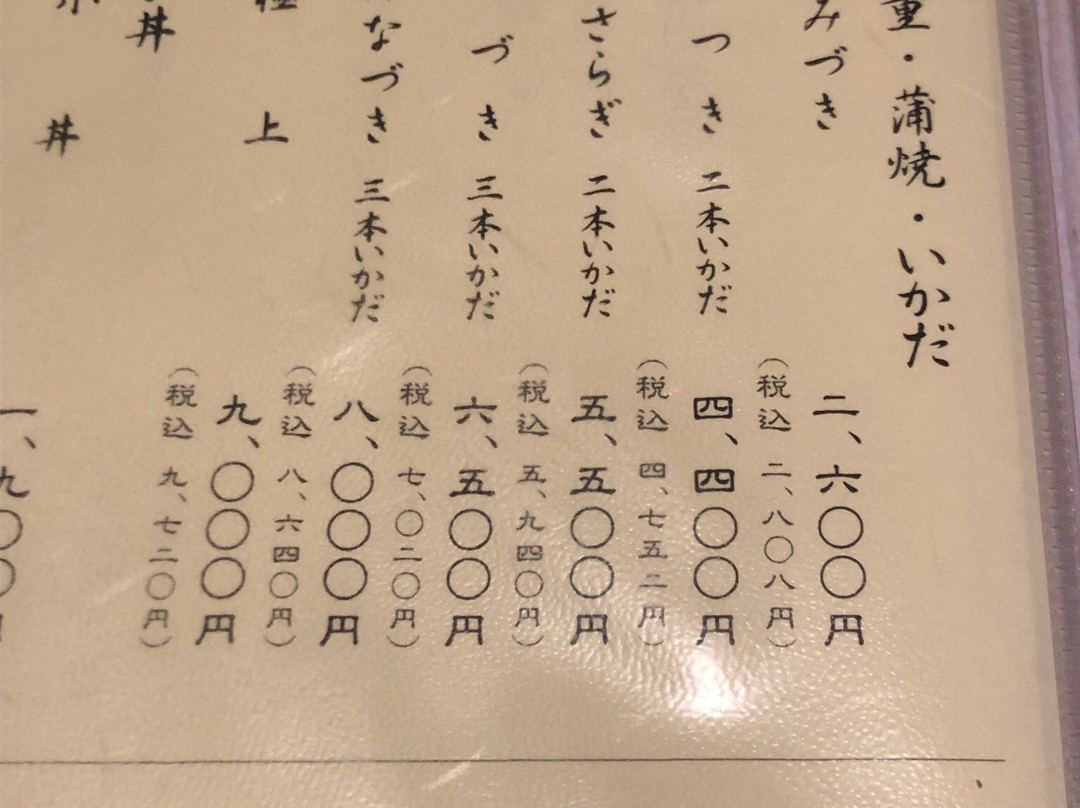 重・蒲焼・いかだ
みづき 二、六〇〇円
（税込 二、八〇八円）
つき 二本いかだ 四、四〇〇円
（税込 四、七五二円）
さらぎ 二本いかだ 五、五〇〇円
（税込 五、九四〇円）
づき 三本いかだ 六、五〇〇円
（税込 七、〇二〇円）
なづき 三本いかだ 八、〇〇〇円
（税込 八、六四〇円）
極上 九、〇〇〇円
（税込 九、七二〇円）
丼
丼 一、九〇〇円